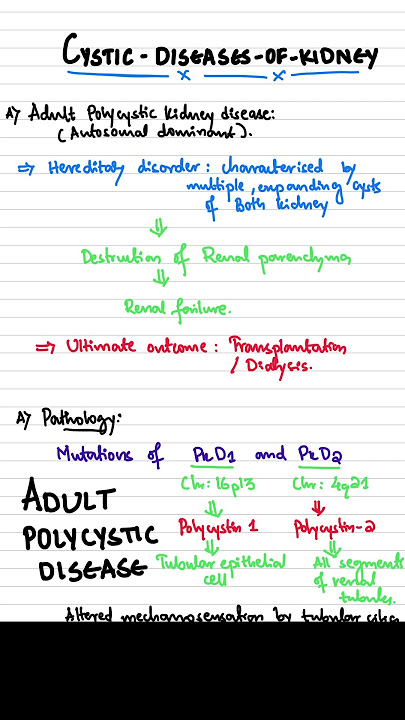 CYSTIC-DISEASES-OF-KIDNEY
A) Adult Polycystic kidney disease:
(Autosomal dominant).
⇒ Hereditary disorder: characterised by
multiple, expanding cysts
of Both kidney
⇓
Destruction of Renal parenchyma
⇓
Renal failure.
⇒ Ultimate outcome: Transplantation
/ Dialysis.
A) Pathology:
Mutations of PKD1 and PKD2
Chr: 16p13 Chr: 4q21
⇓ ⇓
Polycystin 1 Polycystin-2
⇓ ⇓
Tubular epithelial cell
All segments of renal tubules.
ADULT
POLYCYSTIC
DISEASE
Altered mechanosensation by tubular cilia